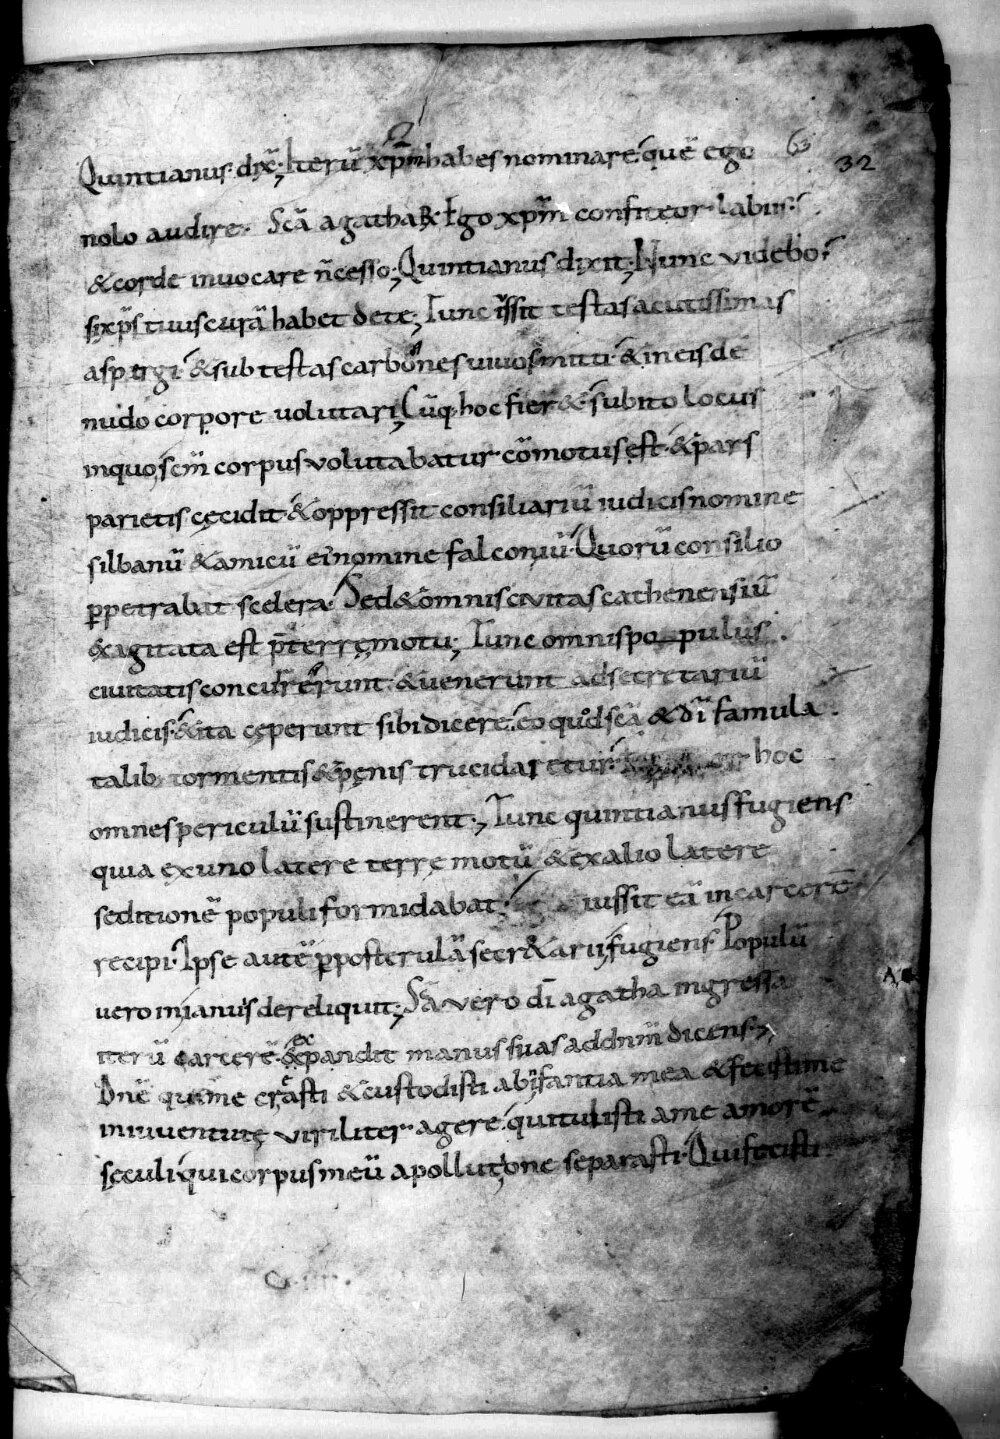 Quintianus· dix̄; Iterū xp̄m habes nominare· quē ego 63
32
nolo audire· Scā agatha R̄· Ego xp̄m confiteor· labiis·
& corde inuocare n̄ cesso; Quintianus dixit; Nunc videbo·
si xp̄s tuus curā habet de te; Tunc iussit testas acutissimas
aspergi· & sub testas carbones uiuos mitti· & in eis de
nudo corpore uolutari; Cūq· hoc fier&· subito locus
in quo sc̄m corpus volutabatur· cōmotus est· & pars
parietis cęcidit· & oppressit consiliariū iudicis nomine
silbanū & amicū ei nomine falconiū· Quorū consilio
ꝑpetrabat scelera· Sed & omnis civitas cathenensiū
exagitata est p̄ terręmotu; Tunc omnis po pulus·
ciuitatis concurrerunt· & uenerunt ad secretariū
iudicis· & ita cęperunt sibi dicere· eo quod scā & dī famula
talib tormentis & pęnis trucidaretur· hoc
omnes periculū sustinerent·; Tunc quintianus fugiens
quia ex uno latere terrę motū & ex alio latere
seditionē populi formidabat· iussit eā in carcerē
recipi· Ipse autē ꝑ posterulā secr&arii fugiens· Populū
uero in ianuis dereliquit; Scā vero dī agatha ingressa
iterū carcerē· expandit manus suas ad dn̄m dicens·;
Dn̄e qui me creasti & custodisti ab infantia mea & fecisti me
in iuuentutę viriliter agere· qui tulisti a me amorē
sęculi qui corpus meū a pollutione separasti· Qui fecisti